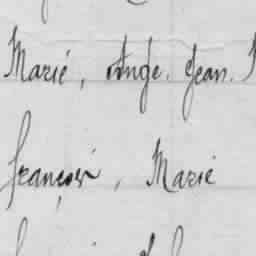 Marié, Ange. Jean.
françois, Marie